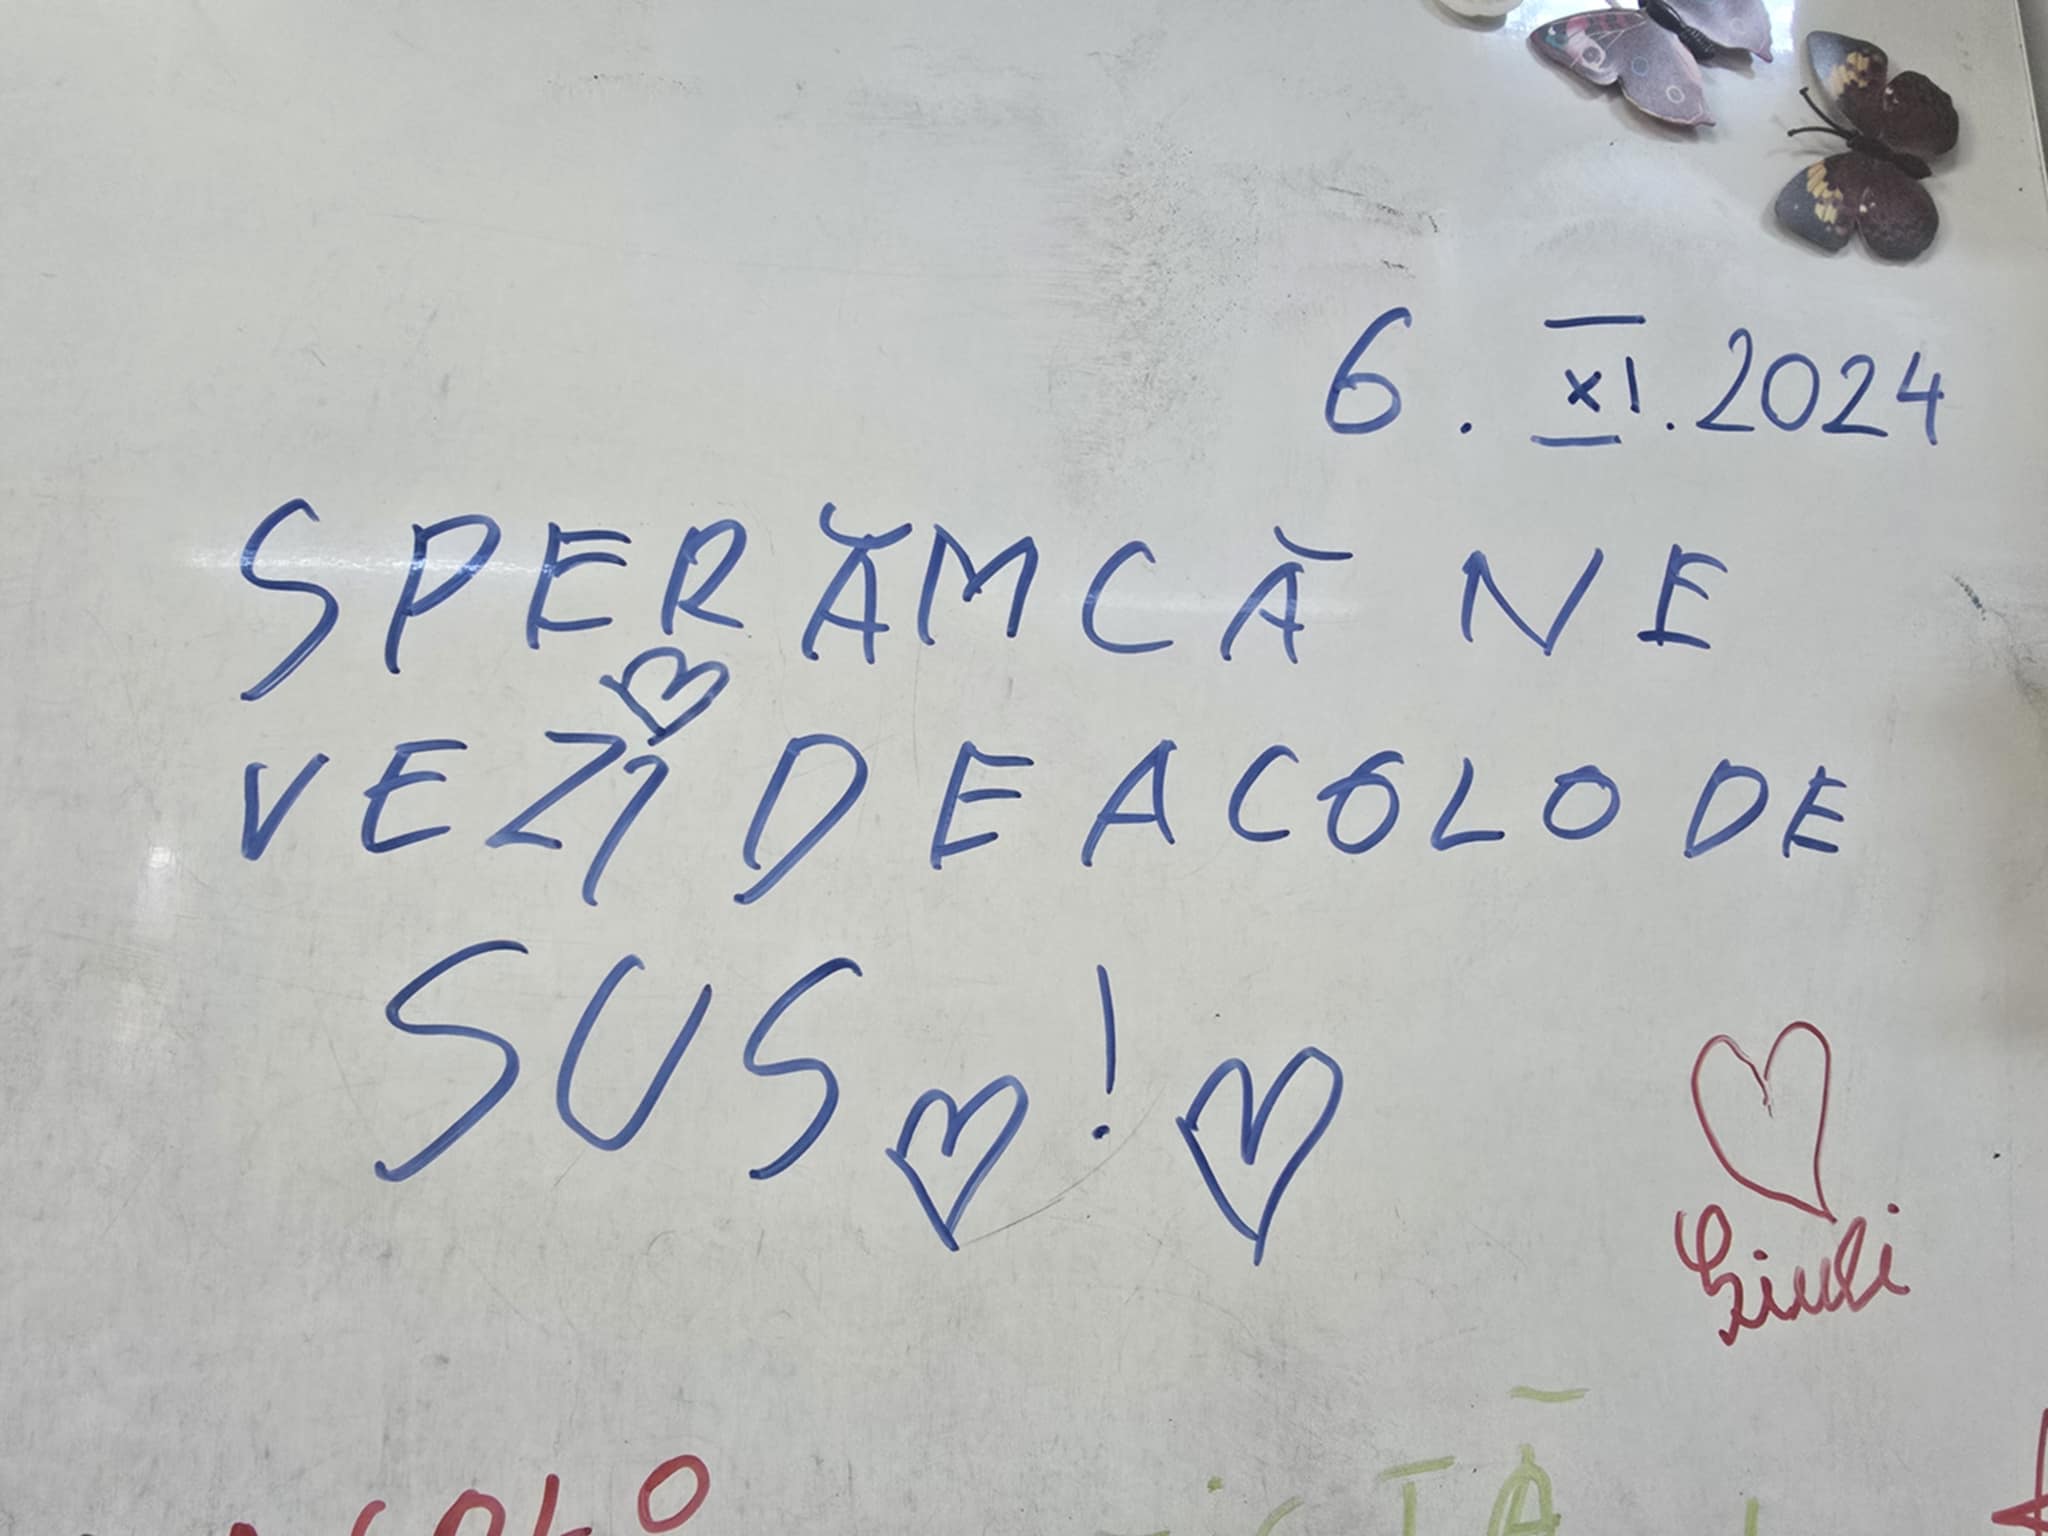 6. XI. 2024
SPERĂM CĂ NE
VEZI DE ACOLO DE
SUS!
Giuli